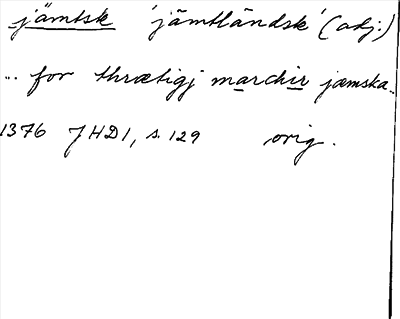 jämtsk 'jämtländsk' (adj.)
... for thrætigj marchir jæmska..
1376 JHD1, s. 129 orig.